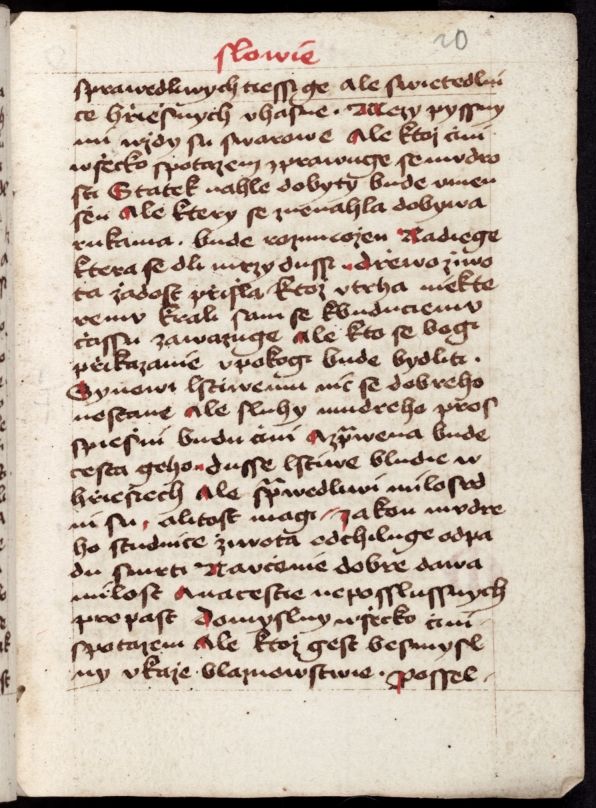 20
slowie
sprawedliwych tiessi ge Ale swietedlni
ce hřiešnych vhasne. Mezy pyssny
mi wždy su swarowe Ale ktož čini
wšecko s potazem zprawuge se mudro
sti Statek nahle dobyty bude vmen
šen Ale ktery se znenahla dobywa
rukama. bude rozmnožen Nadiege
ktera se dli mrzy dussi. dřewo žiwo
ta žadost přišla ktož vtrha niekte
remu kralі sam se k buducіemu
čassu zawazuge Ale kto se bogi
přikazanie v pokogi bude bydliti.
Synowi lstiwemu nic se dobreho
nestane Ale sluhy mudreho pros
spiešni budu čini A zprawena bude
cesta geho. dusse lstiwe bludie w
hřiešiech Ale sprawedliwi milosrd
ni su, a litost magi, zakon mudre
ho studnice žiwota odchiluge od pa
du smrti Naučenie dobre dawa
milost Ana cestie neposslussnych
propast Domyslny wšecko čini
s potazem Ale ktož gest besmysl
ny vkaže blaznowstwie. possel